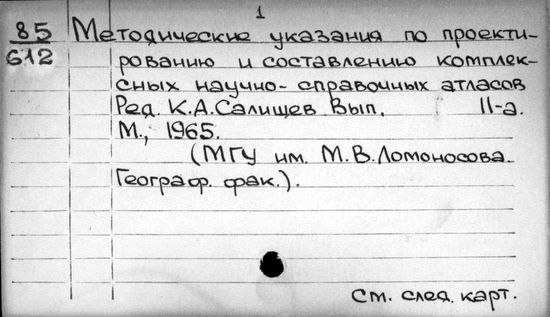 1
85 Методические указания по проекти-
612 рованию и составлению комплек-
сных научно-справочных атласов
Ред. К.А.Салищев Вып. II-а.
М., 1965.
(МГУ им. М.В.Ломоносова.
Географ. фак.).
См. след. карт.